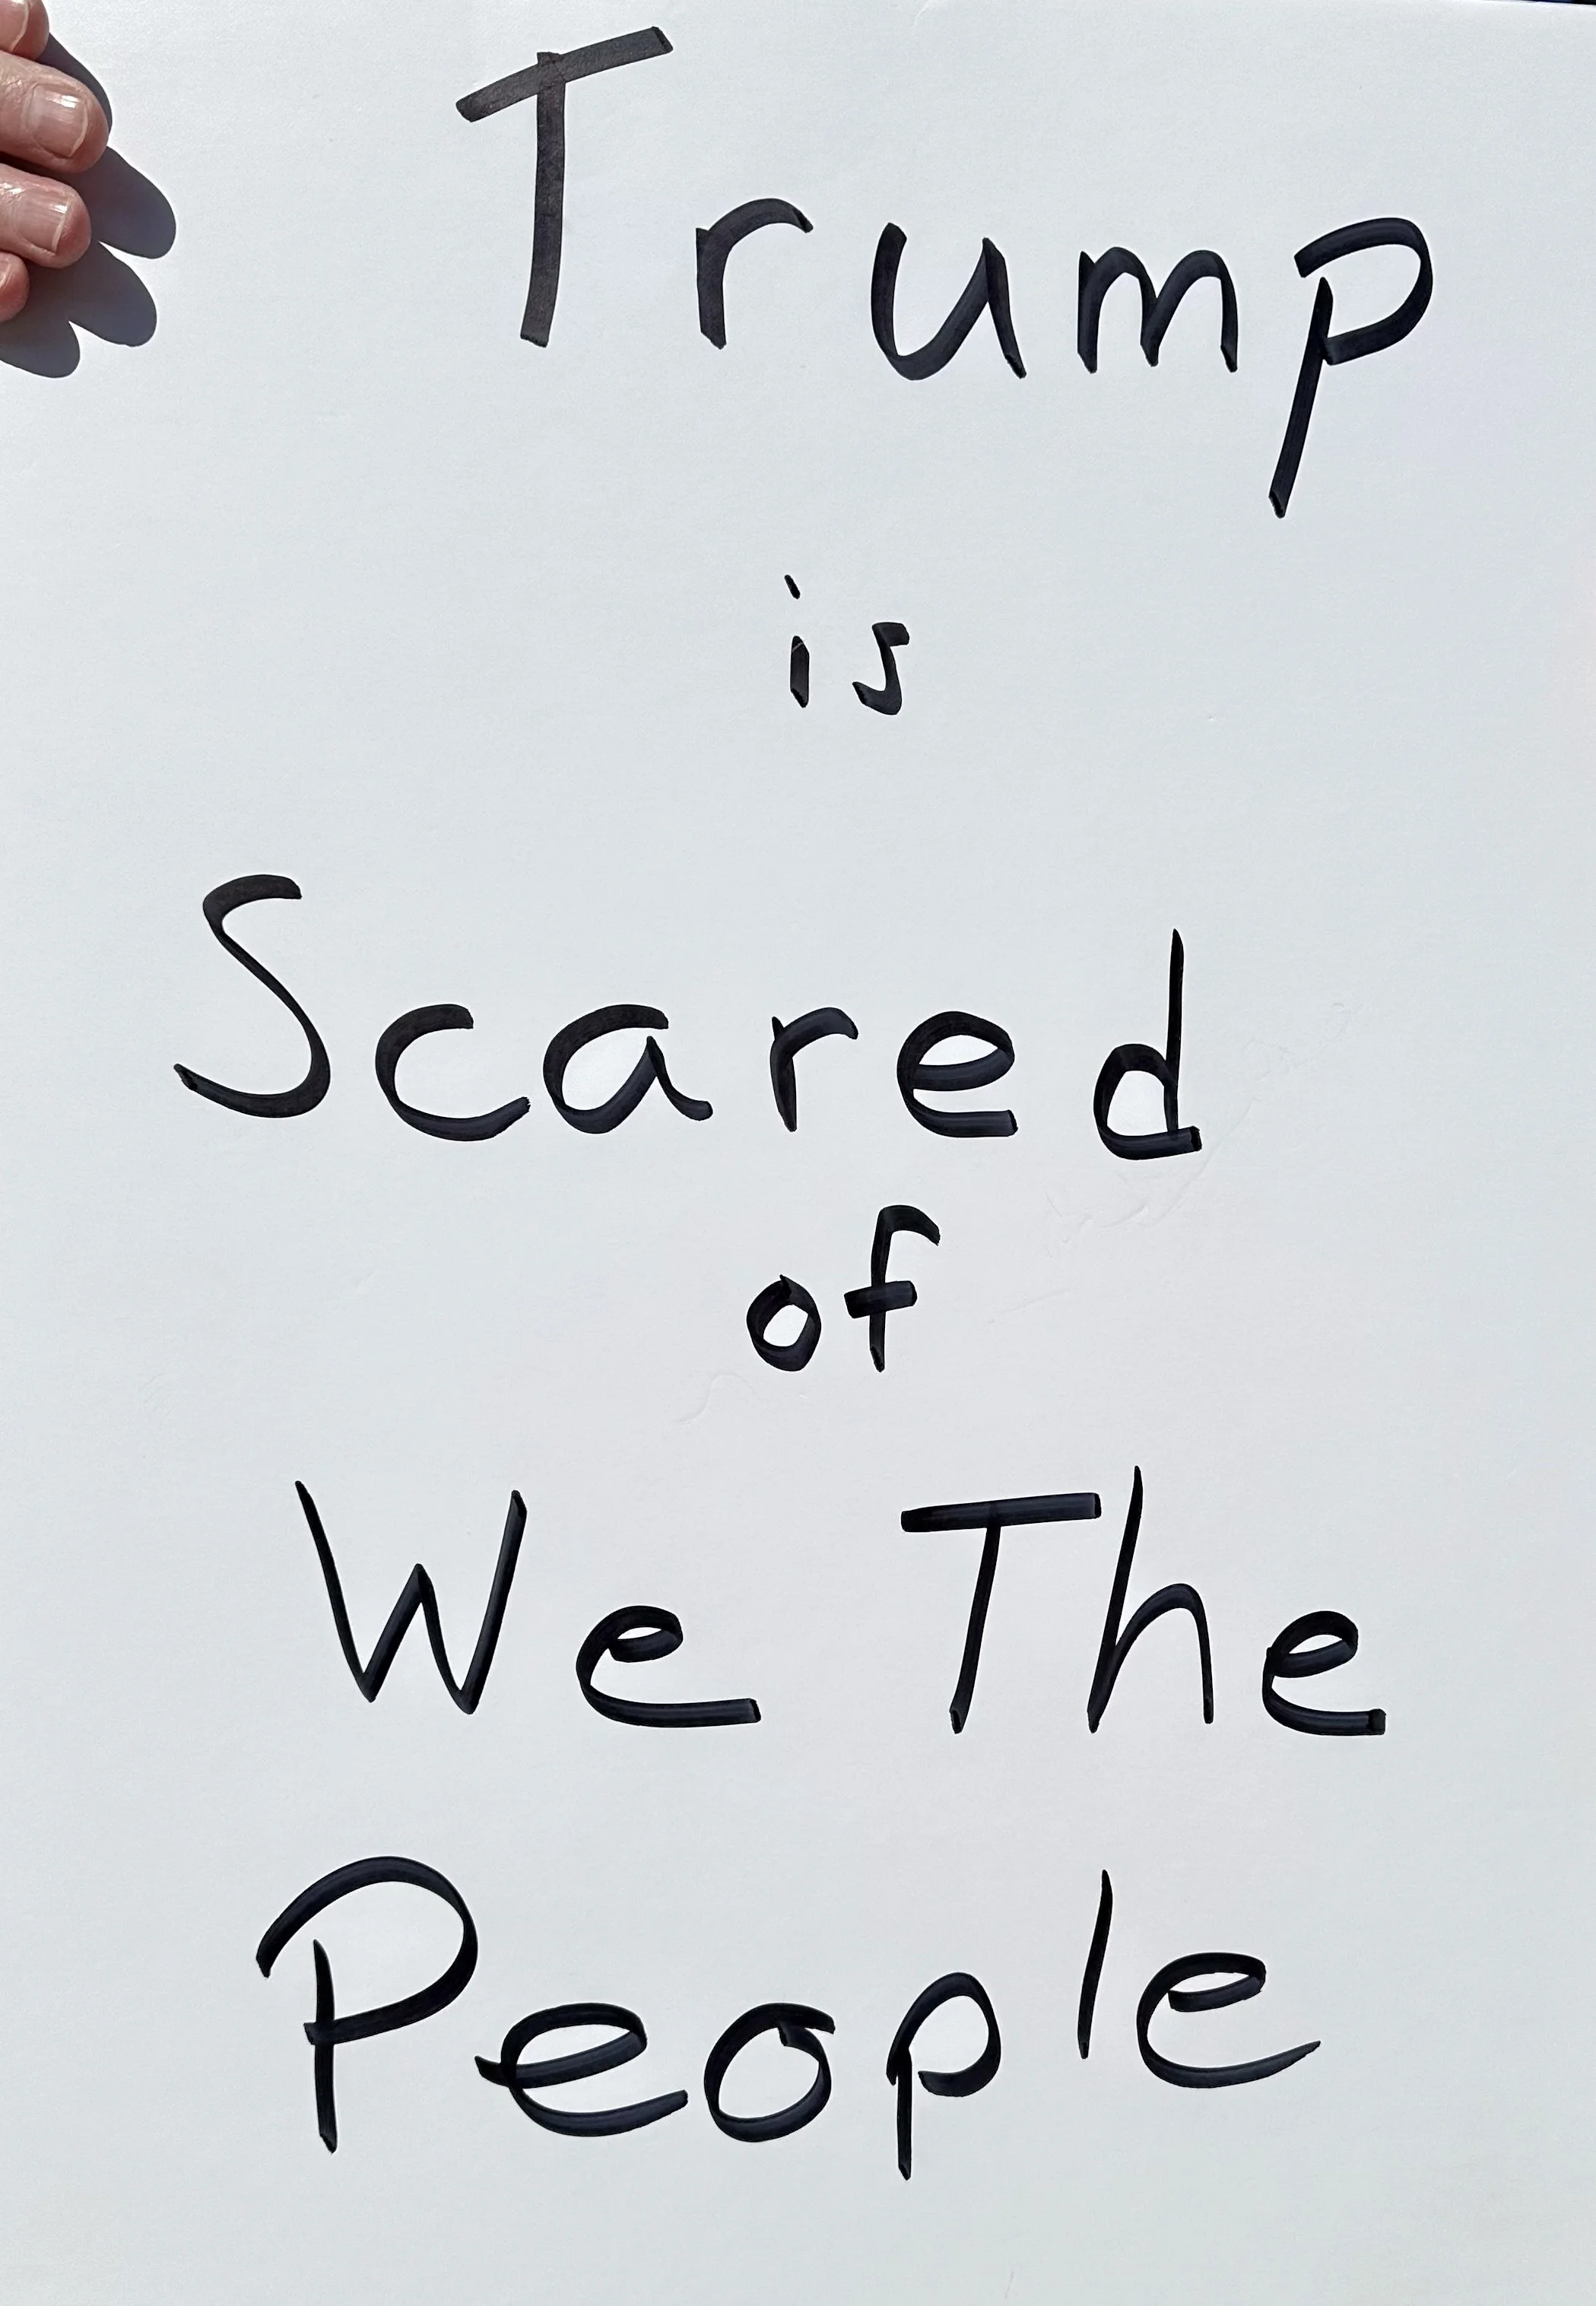 Trump
is
Scared
of
We The
People